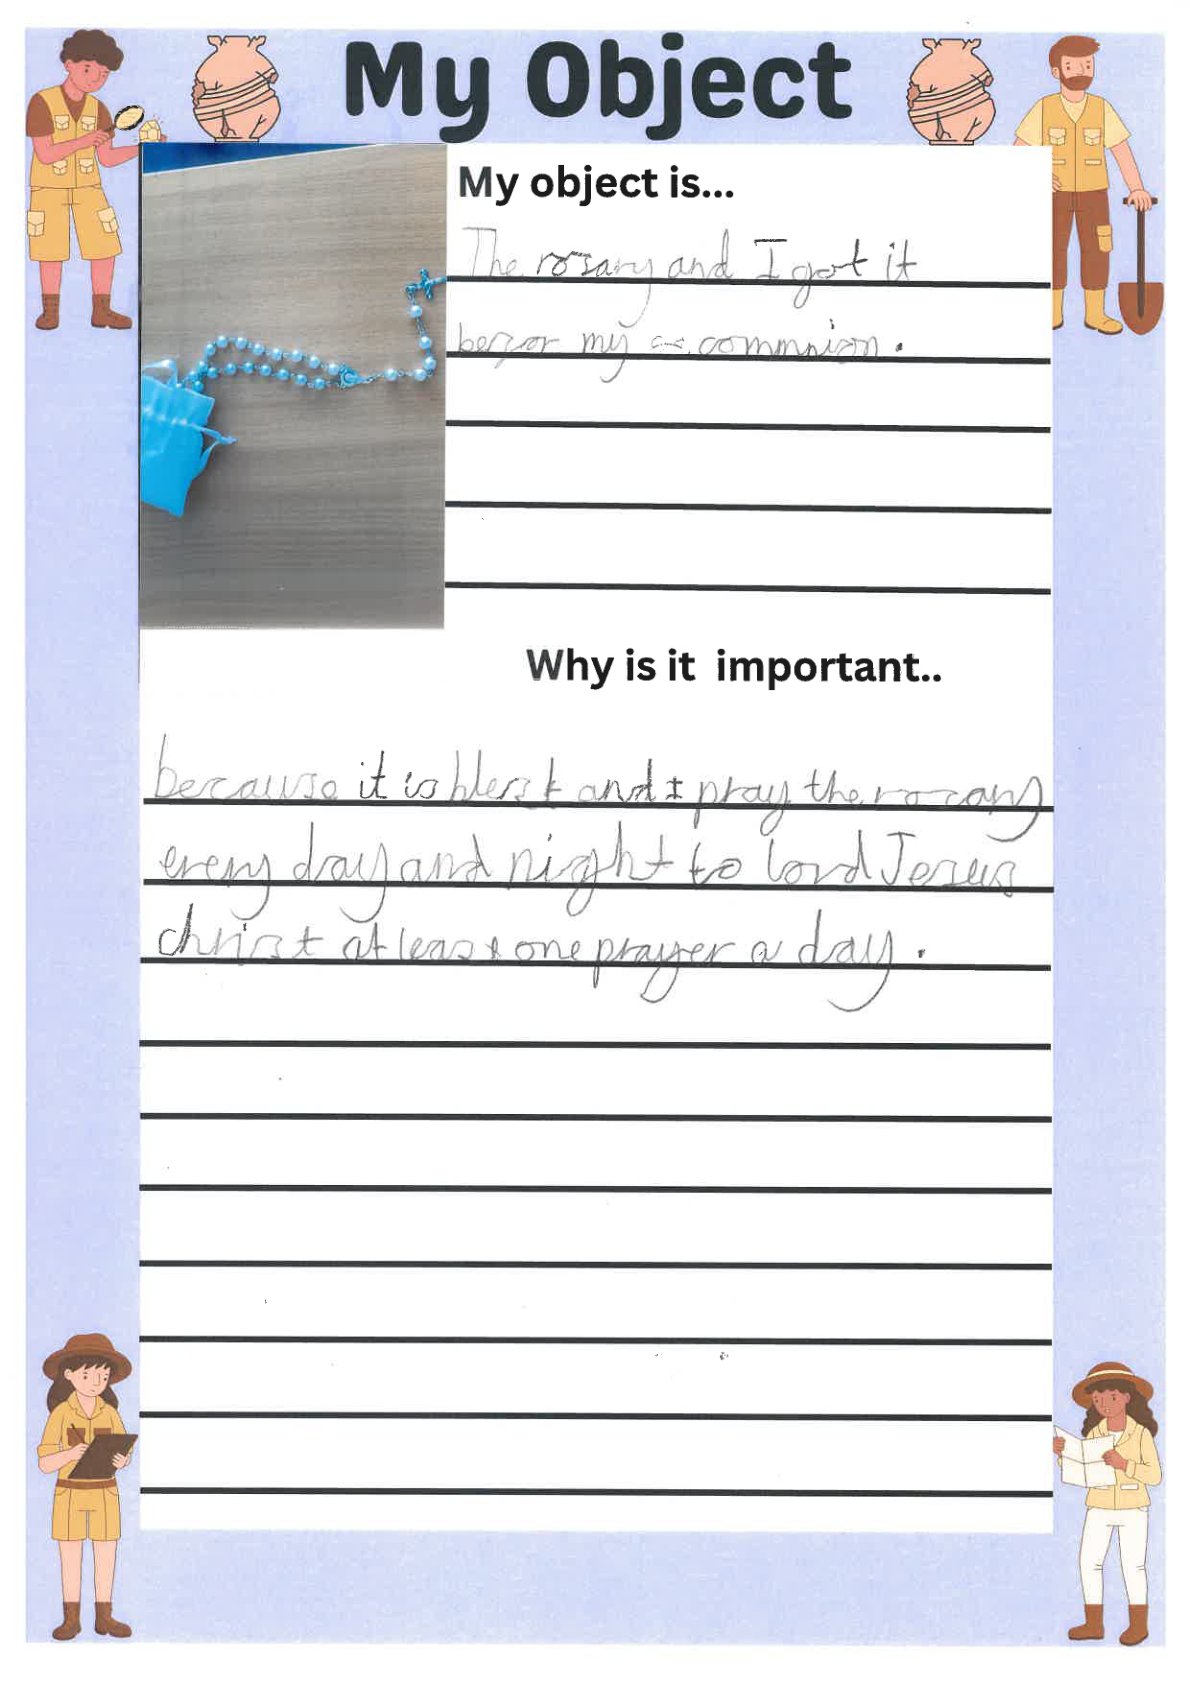 My Object
My object is...
The rosary and I got it
befor my commnion.
Why is it important..
because it is blesst and I pray the rosary
every day and night to lord Jesus
christ at least one prayer a day.